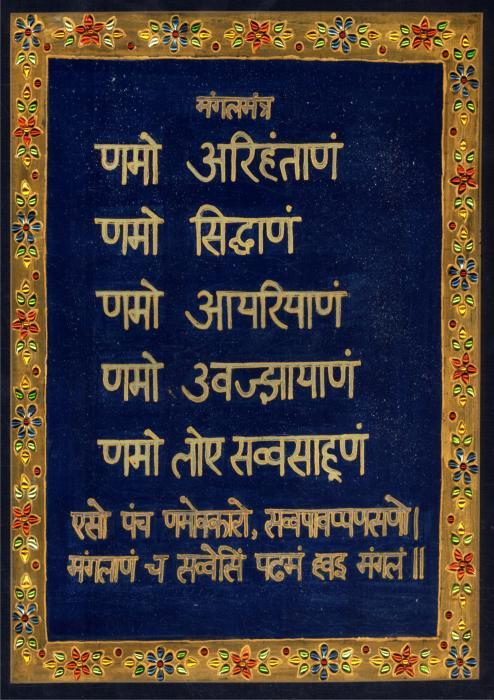 मंगलमंत्र
णमो अरिहंताणं
णमो सिद्धाणं
णमो आयरियाणं
णमो उवज्झायाणं
णमो लोए सव्वसाहूणं
एसो पंच णमोक्कारो, सव्वपावप्पणासणो।
मंगलाणं च सव्वेसिं पढमं हवइ मंगलं॥